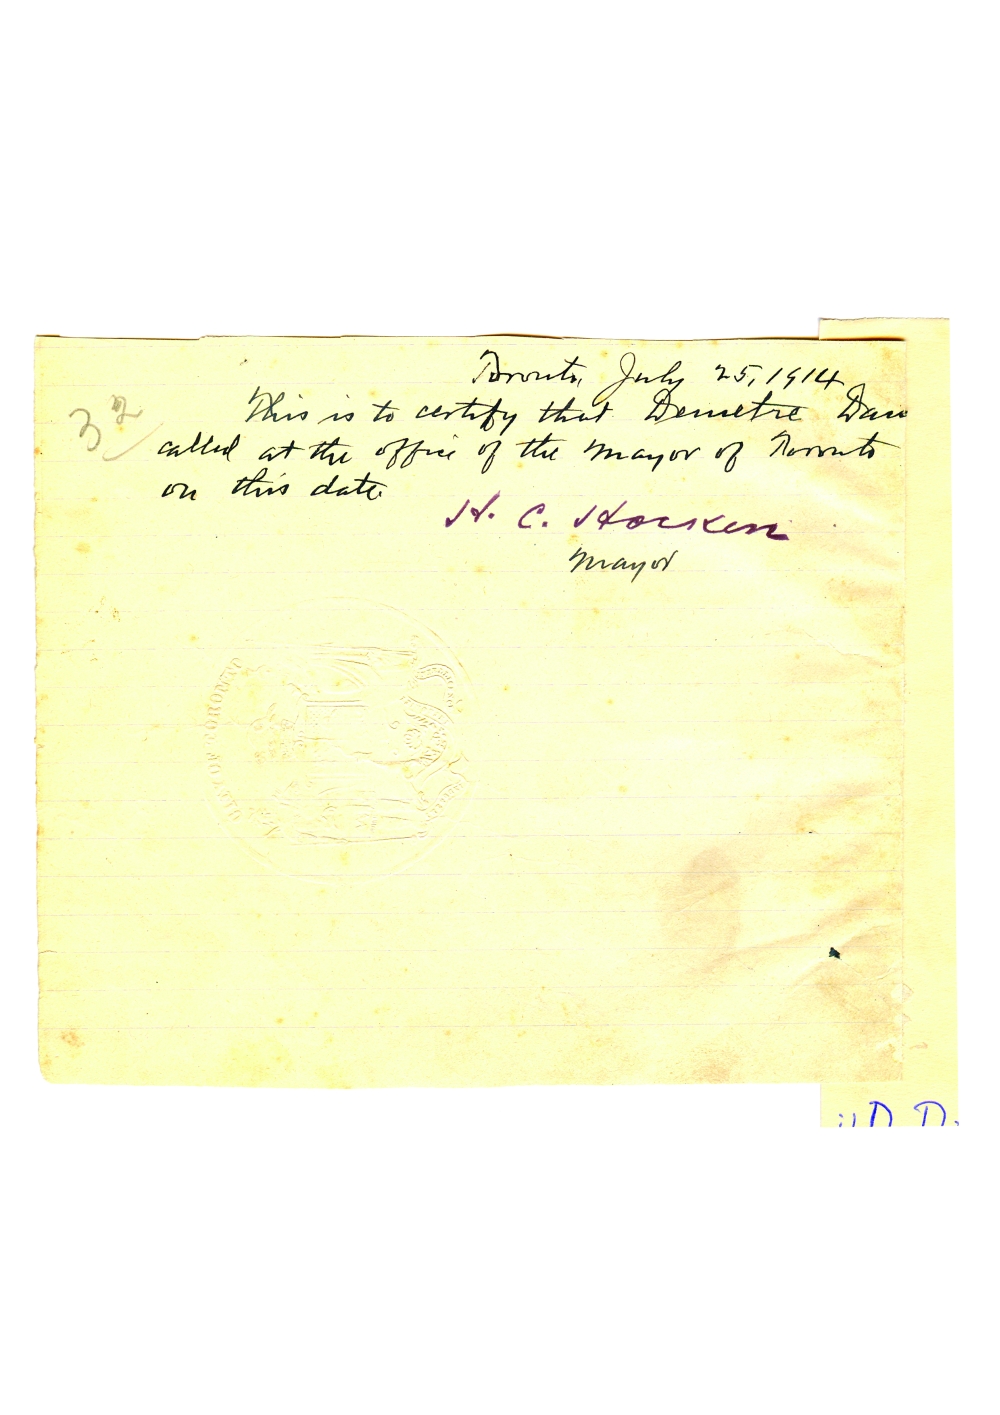 Toronto, July 25, 1914
32
This is to certify that Demetre Dan
called at the office of the Mayor of Toronto
on this date
H. C. Hocken
Mayor
CITY OF TORONTO
D D.